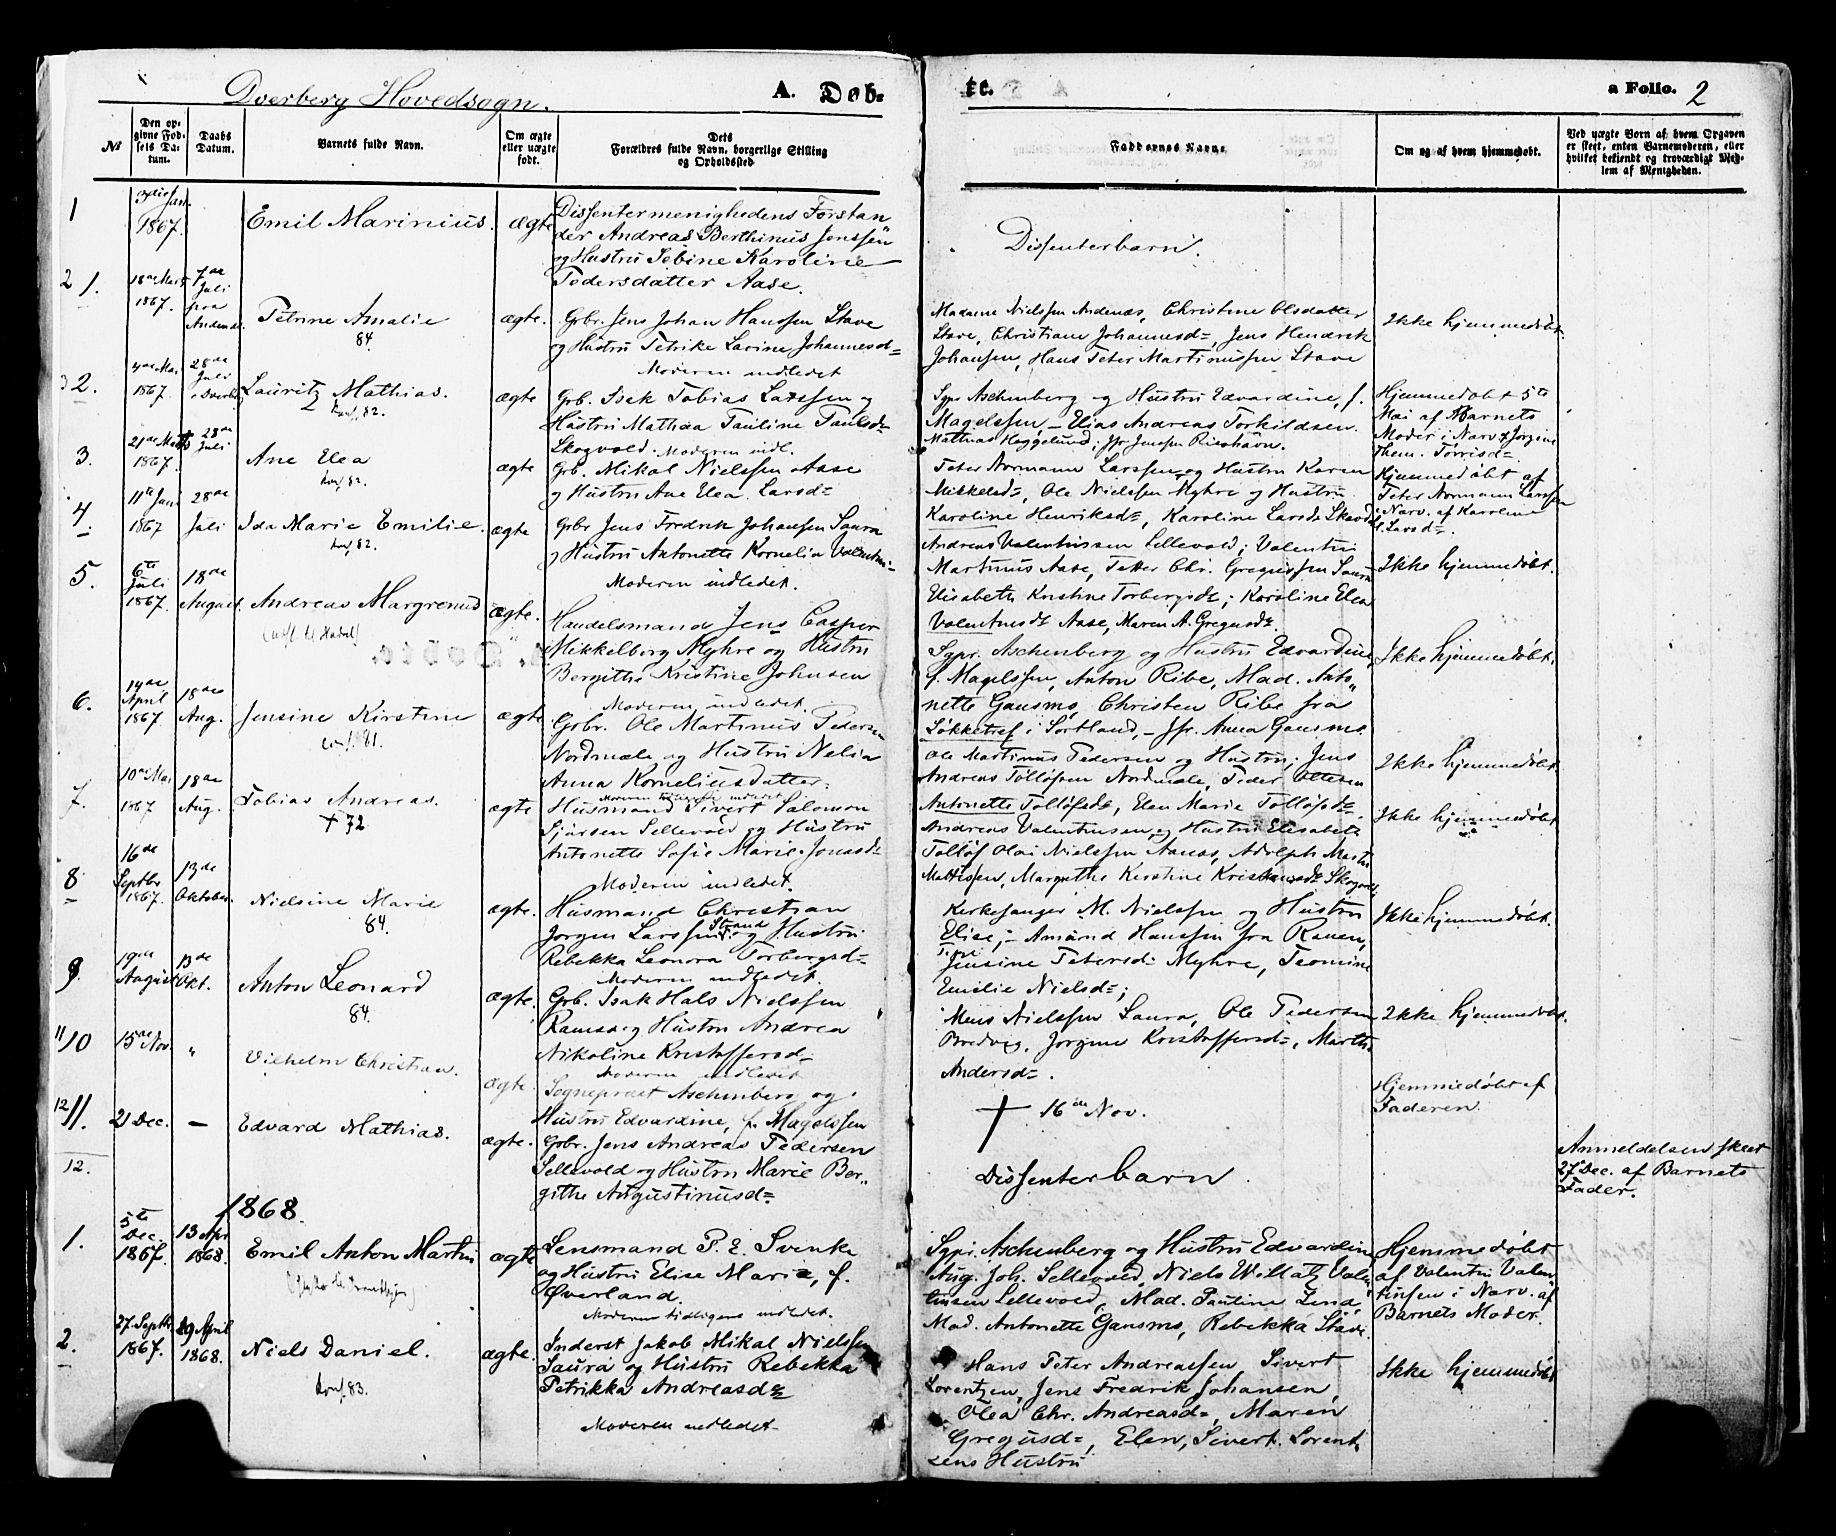 Dverberg Hovedsogn.
A. Døb-
te.
a Folio. 2
No
Den op-
givne Fød-
sels Da-
tum.
Daabs
Datum.
Barnets fulde Navn.
Om ægte
eller uægte
født.
Dets
Forældres fulde Navn, borgerlige Stilling
og Opholdssted
Faddernes Navne.
Om og af hvem hjemmedøbt.
Ved uægte Børn af hvem Opgaven
er skeet, enten Barnemoderen, eller
hvilket bekjendt og troværdigt Med-
lem af Menigheden.
1
1867.
Emil Marinius.
ægte
Dissentermenighedens Forstan
der Andreas Berthinus Jenssen
og Hustru Sebine Karoline
Pedersdatter Aase.
Dissenterbarn.
2 1.
18de Marts
1867.
7de
Juli
paa
Andenæs
Petrine Amalie
84.
ægte.
Gbr. Jens Johan Hanssen Stave
og Hustru Petrike Lavine Johannesd=
Moderen indledet
Madame Nielssen Andenæs, Christine Olsdatter
Stave, Christiane Johannesd=, Jens Hendrik
Johansen, Hans Peter Martinussen Stave
Ikke hjemmedøbt.
2.
1867.
28de
Juli
i Dverberg
Lauritz Mathias.
konf. 82.
ægte
Grb. Isak Tobias Larssen og
Hustru Mathea Pauline Paulsd=
Skogvold. Moderen indl.
Sgpr. Aschenberg og Hustru Edvardine, f.
Magelssen, Elias Andreas Torkildsen.
Mathias Heggelund; Jfr. Jenssen Risøhavn.
Hjemmedøbt 5te
Mai af Barnets
Moder i Narv. af Jorgine
Them. Torrisd=.
3.
21de Marts
1867.
28de
Juli
Ane Elea
konf. 82.
ægte
Grb. Mikal Nielssen Aase
og Hustru Ane Elea Larsd=
Peter Normann Larssen og Hustru Karen
Mikkelsd=, Ole Nielssen Myhre og Hustru
Karoline Henriksd=, Karoline Larsd=
Hjemmedøbt af
Peter Normann Larssen
i Narv. af Karoline
Larsd=.
4
11te Juni
1867
28de
Juli
Ida Marie Emilie.
konf. 82.
ægte
Grbr. Jens Fredrik Johansen Saura
og Hustru Antonette Kornelia Valentin=
Moderen indledet.
Andreas Valentinssen Sellevold; Valentin
Martinus Aase, Petter Chr. Gregussen Saura
Elisabeth Kristine Torbergsd=; Karoline Elea
Valentinsd= Aase, Maren A. Gregusd=.
Ikke hjemmedøbt.
5.
6te
Juli
1867.
18de
August.
Andreas Margrenus
ægte.
Handelsmand Jens Casper
Mikkelborg Myhre og Hustru
Bergithe Kristine Johnsen
Moderen indledet.
Sgpr. Aschenberg og Hustru Edvardine,
f. Magelssen, Anton Ribe, Mad. Anto„
nette Gausmo, Christen Ribe fra
Løkketref i Sortland, – Jfr. Anna Gausmo.
Ikke hjemmedøbt.
6.
14de
April
1867.
18de
Aug.
Jensine Kirstine
conf. 81.
ægte
Grbr. Ole Martinus Pedersen
Nordmæle og Hustru Nelia
Anna Korneliusdatter.
Ole Martinus Pedersen og Hustru; Jens
Andreas Tolløfsen Nordmæle, Peder Ottesen
Antonette Tolløfsd=, Elen Marie Tolløfsd=.
Ikke hjemmedøbt.
7.
10de Mai
1867
18de
Aug.
Tobias Andreas.
† 72
ægte
Husmand Sivert Salomon
Sjursen Sellevold og Hustru
Antonette Sofie Marie Jonasd=
Moderen indledet.
Andreas Valentinsen og Hustru Elisabeth
Tolløf Olai Nielssen Aanes, Adolph Martin
Mattisen, Margrethe Kirstine Kristiansd=
Ikke hjemmedøbt
8
16de
Septbr
1867.
13de
Oktober
Nielsine Marie
84.
ægte.
Husmand Christian
Jørgen Larssen Strand og Hustru
Rebekka Leonora Torbergsd=
Moderen indledet.
Kirkesanger M. Nielssen og Hustru
Elise; – Amund Hanssen fra Ramen,
Jensine Petersd= Myhre, Leonine
Emilie Nielsd=;
Ikke hjemmedøbt.
9.
19de
August
13de
Okt.
Anton Leonard
84.
ægte.
Grb. Isak Hals Nielssen
Ramsa og Hustru Andrea
Nikoline Kristoffersd=
Moderen indledet
Mens Nielssen Saura, Ole Pedersen
Bredvig, Jorgine Kristoffersd=, Marth.
Andersd=.
Ikke hjemmedøbt.
11 10
15de Nov.
„
Vilhelm Christian.
ægte.
Sogneprest Aschenberg og
Hustru Edvardine, f. Magelssen
† 16de Nov.
Hjemmedøbt af
Faderen.
12 11.
21 Dec.
—
Edvard Mathias.
ægte.
Grbr. Jens Andreas Pedersen
Sellevold og Hustru Marie Ber„
githe Augustinusd=
Dissenterbarn.
Anmeldelsen skeet
27 Dec. af Barnets
Fader.
12.
1868.
1.
5te
Dec.
1867.
13 Apr
1868.
Emil Anton Martin
ægte
Lensmand P. E. Svinke
og Hustru Elise Marie, f.
Øverland.
Moderen tidligere indledet.
Sgpr. Aschenberg og Hustru Edvardine,
Aug. Joh. Sellevold, Niels Willatz Valen
tinsen Sellevold, Mad. Pauline Lind,
Mad. Antonette Gausmo, Rebekka Stave.
Hjemmedøbt
af Valentin Valen
tinsen i Narv. af
Barnets Moder.
2.
27 Septbr.
1867.
29 April
1868.
Niels Daniel.
konf. 83.
ægte.
Inderst Jakob Mikal Nielssen
Saura og Hustru Rebekka
Petrikka Andreasd=
Moderen indledet
Hans Peter Andreassen, Sivert
Lorentzen, Jens Fredrik Johansen,
Olea Chr. Andreasd=, Maren
Gregusd=, Elen, Sivert Lorent
zens Hustru
Ikke hjemmedøbt